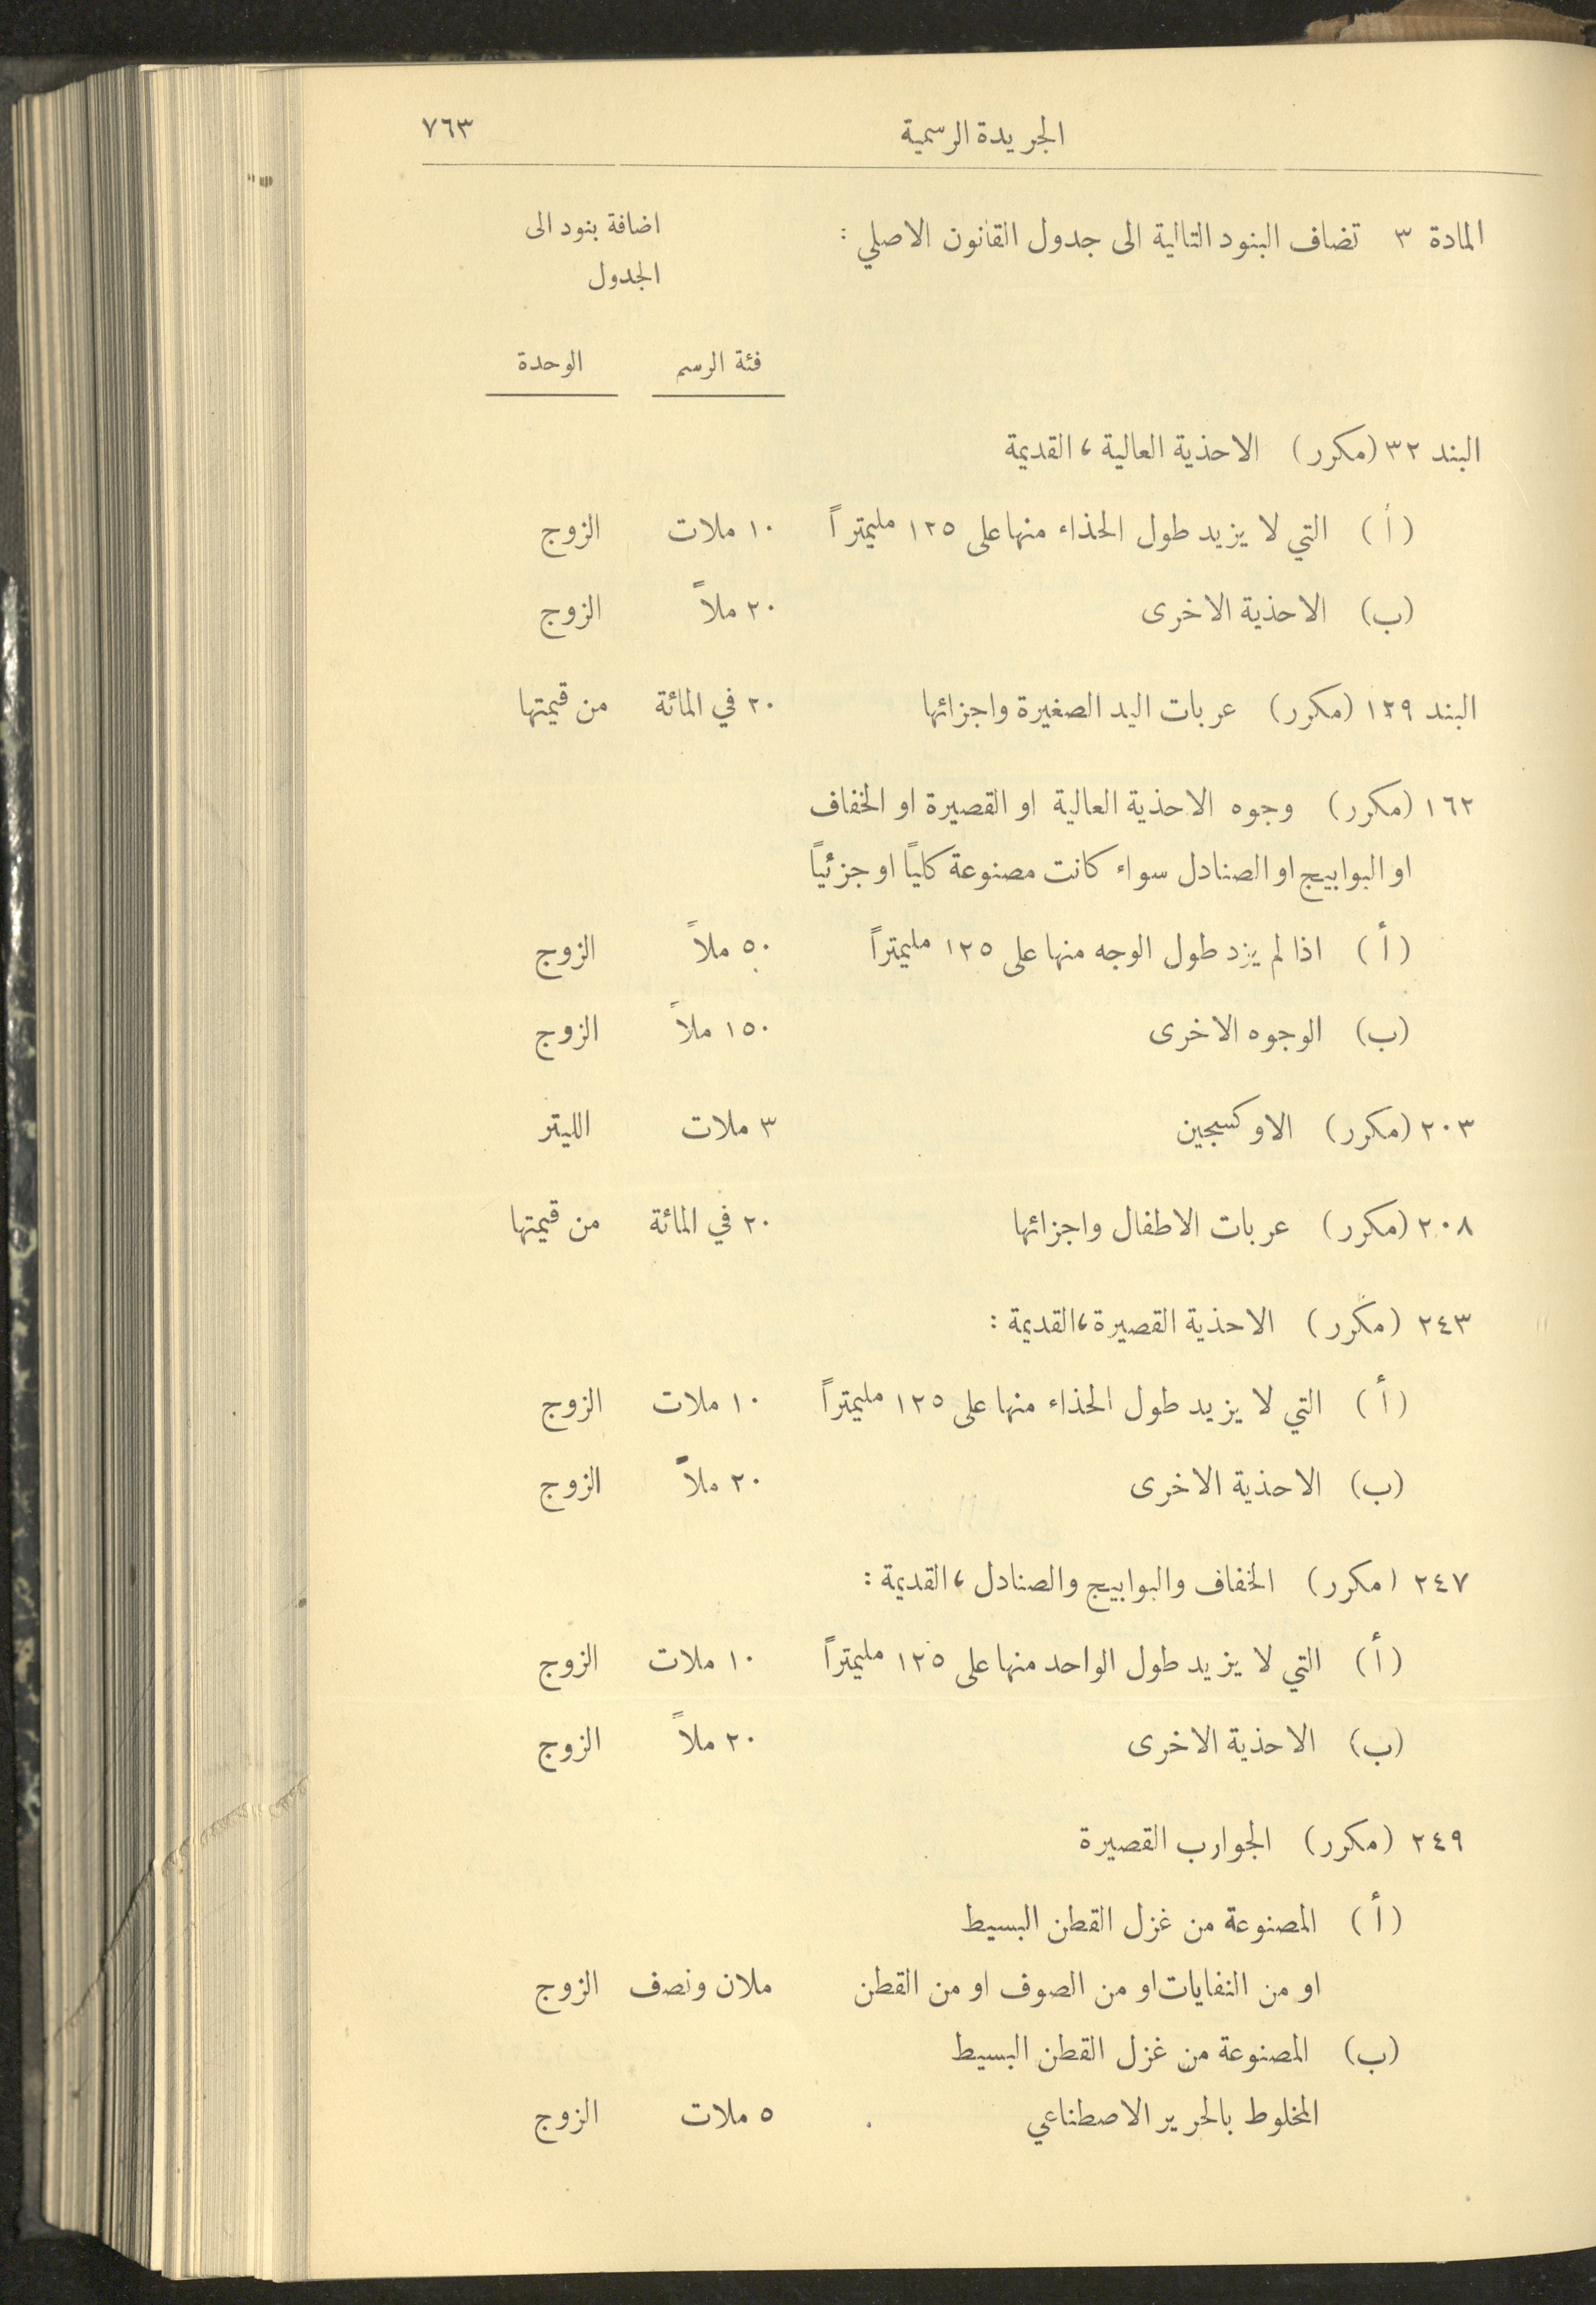 الجريدة الرسمية ٧٦٣
المادة ٣ تضاف البنود التالية الى جدول القانون الاصلي : اضافة بنود الى
الجدول
فئة الرسم الوحدة
البند ٣٢ (مكرر) الاحذية العالية ، القديمة
(أ) التي لا يزيد طول الحذاء منها على ١٢٥ مليمتراً ١٠ ملات الزوج
(ب) الاحذية الاخرى ٢٠ ملاً الزوج
البند ١٢٩ (مكرر) عربات اليد الصغيرة واجزائها ٢٠ في المائة من قيمتها
١٦٢ (مكرر) وجوه الاحذية العالية او القصيرة او الخفاف
او البوابيج او الصنادل سواء كانت مصنوعة كلياً او جزئياً
(أ) اذا لم يزد طول الوجه منها على ١٢٥ مليمتراً ٥٠ ملاً الزوج
(ب) الوجوه الاخرى ١٥٠ ملاً الزوج
٢٠٣ (مكرر) الاوكسجين ٣ ملات الليتر
٢٠٨ (مكرر) عربات الاطفال واجزائها ٢٠ في المائة من قيمتها
٢٤٣ (مكرر) الاحذية القصيرة ، القديمة :
(أ) التي لا يزيد طول الحذاء منها على ١٢٥ مليمتراً ١٠ ملات الزوج
(ب) الاحذية الاخرى ٢٠ ملاً الزوج
٢٤٧ (مكرر) الخفاف والبوابيج والصنادل ، القديمة :
(أ) التي لا يزيد طول الواحد منها على ١٢٥ مليمتراً ١٠ ملات الزوج
(ب) الاحذية الاخرى ٢٠ ملاً الزوج
٢٤٩ (مكرر) الجوارب القصيرة
(أ) المصنوعة من غزل القطن البسيط
او من النفايات او من الصوف او من القطن ملان ونصف الزوج
(ب) المصنوعة من غزل القطن البسيط
المخلوط بالحرير الاصطناعي ٥ ملات الزوج